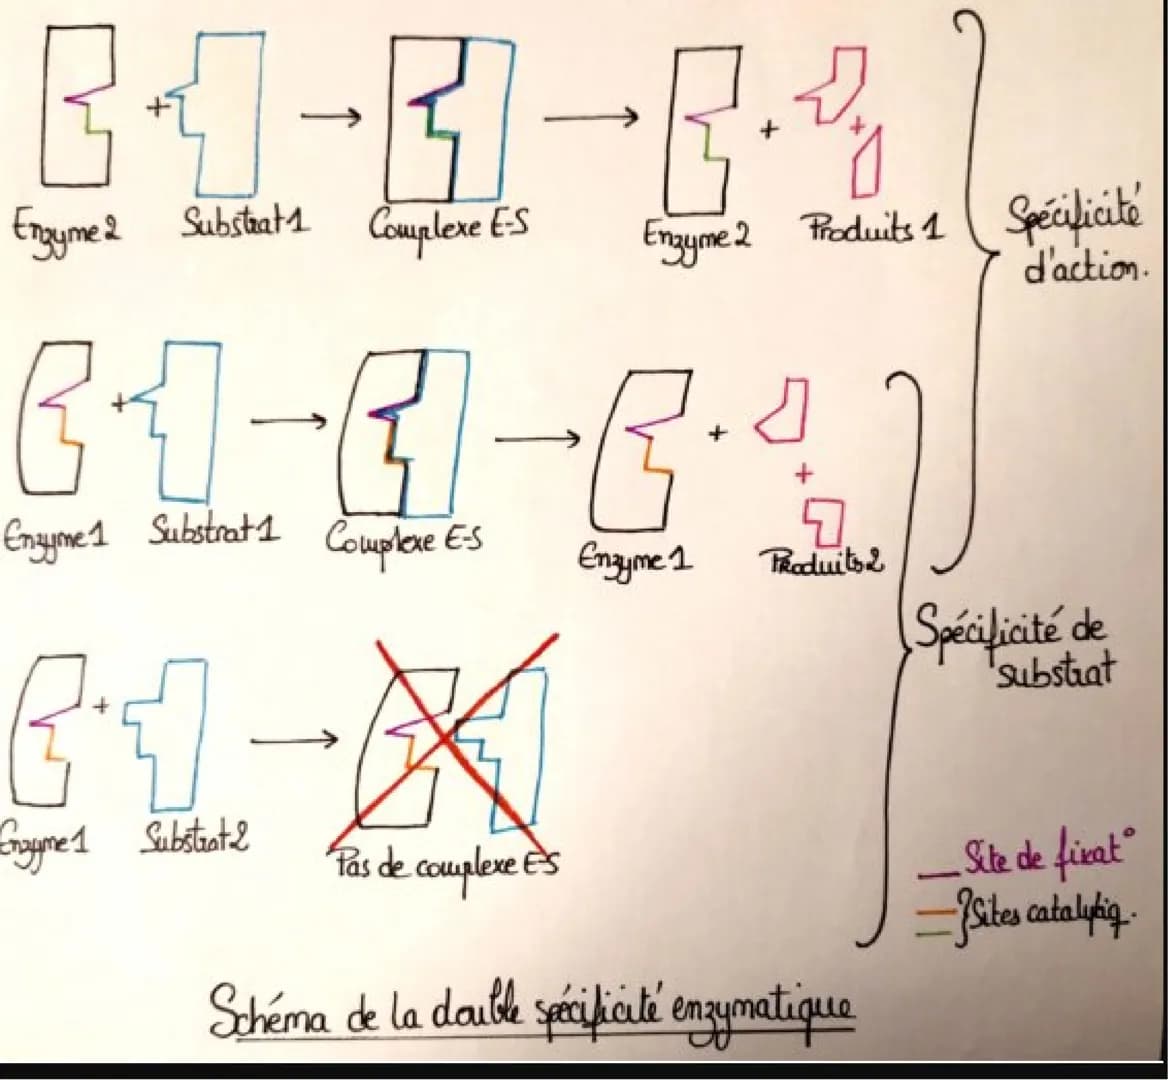 + + +
Enzyme 2 Substrat 1 Complexe E-S Enzyme 2 Produits 1
Spécificité
d'action.
+ + +
Enzyme 1 Substrat 1 Complexe E-S Enzyme 1 Produits 2
Spécificité de
substrat
+
Enzyme 1 Substrat 2 Pas de complexe ES
Site de fixat°
Sites catalytiq.
Schéma de la double spécificité enzymatique